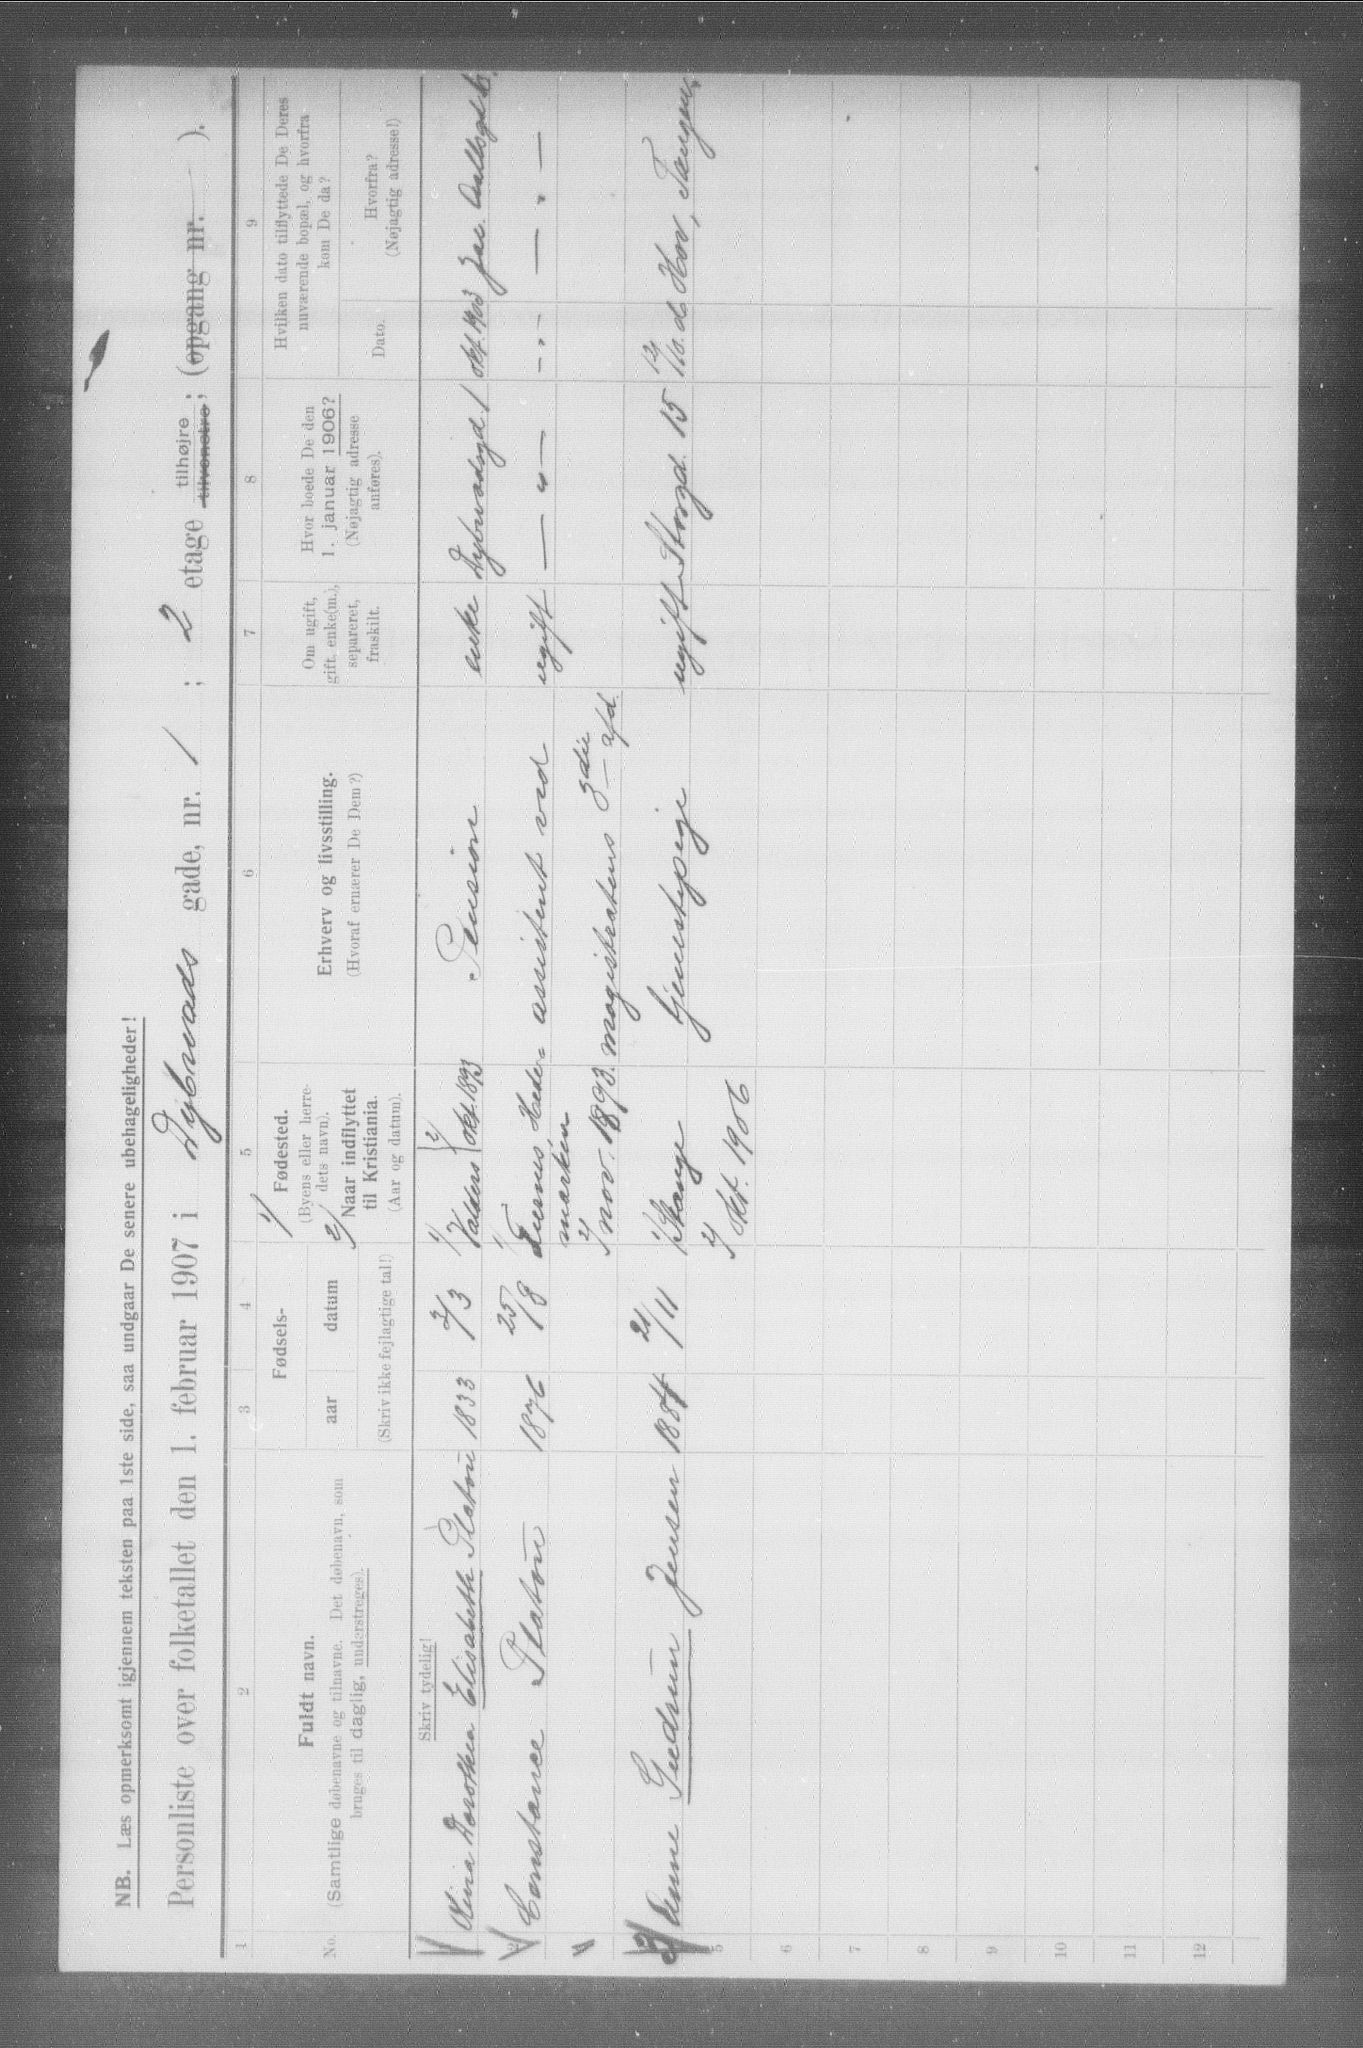 NB. Læs opmerksomt igjennem teksten paa 1ste side, saa undgaar De senere ubehageligheder!
Personliste over folketallet den 1. februar 1907 i Dybvads gade, nr. 1 ; 2 etage tilhøjre tilvenstre; (opgang nr. ).
1 2 3 4 5 6 7 8 9
No.
Fuldt navn.
(Samtlige døbenavne og tilnavne. Det døbenavn, som
bruges til daglig, understreges).
Fødsels-
aar datum
(Skriv ikke fejlagtige tal!)
1) Fødested.
(Byens eller herre-
dets navn).
2) Naar indflyttet
til Kristiania.
(Aar og datum).
Erhverv og livsstilling.
(Hvoraf ernærer De Dem?)
Om ugift,
gift, enke(m.),
separeret,
fraskilt.
Hvor boede De den
1. januar 1906?
(Nøjagtig adresse
anføres).
Hvilken dato tilflyttede De Deres
nuværende bopæl, og hvorfra
kom De da?
Dato.
Hvorfra?
(Nøjagtig adresse!)
Skriv tydelig!
Dorothea Elisabeth Platou 1833 2/3 1) Valders 2) okt. 1893 Pension enke Dybvadsgd. 1 okt 1903
2 Constance Platou 1876 25/8 1) Hede- assistent ved ugift — " — - " - — " —
marken
2) nov. 1893. magistratens 3die afd.
3) Anne Gudrun Jensen 1884 21/11 1) Stange tjenestepige ugift Storgd. 15 Hov, Tangen.
5 2) Okt. 1906
6
7
8
9
10
11
12